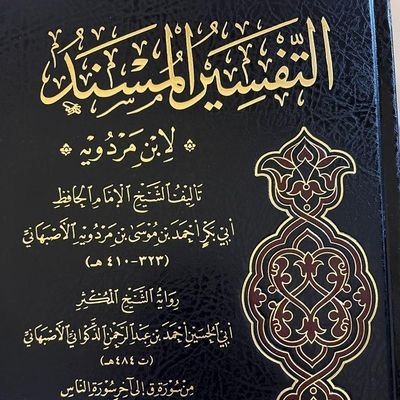 التَّفْسِيرُ المُسْنَدُ
لِابْنِ مَرْدُويَه
تَأْلِيفُ الشَّيْخِ الإِمَامِ الحَافِظِ
أَبِي بَكْرٍ أَحْمَدَ بْنِ مُوسَى بْنِ مَرْدُويَه الأَصْبَهَانِيِّ
(٣٢٣-٤١٠ هـ)
رِوَايَةُ الشَّيْخِ المُكْثِرِ
أَبِي الحُسَيْنِ أَحْمَدَ بْنِ عَبْدِ الرَّحْمَنِ الذَّكْوَانِيِّ الأَصْبَهَانِيِّ
(ت ٤٨٤ هـ)
مِنْ سُورَةِ ق إِلَى آخِرِ سُورَةِ النَّاسِ